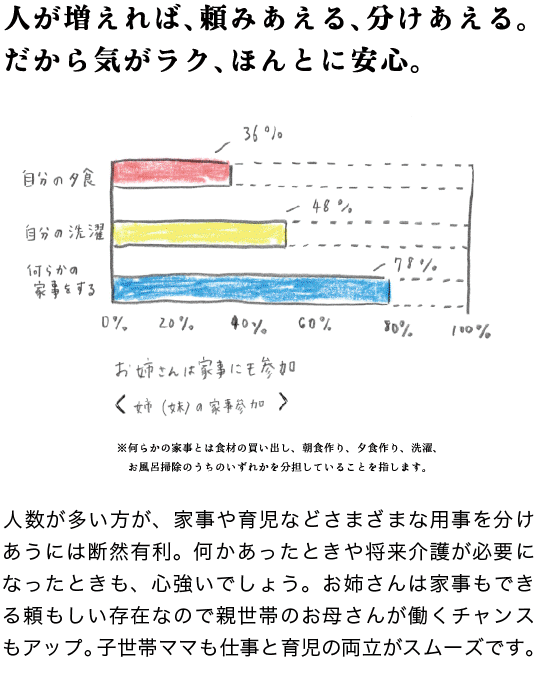 人が増えれば、頼みあえる、分けあえる。
だから気がラク、ほんとに安心。
36%
自分の夕食
48%
自分の洗濯
78%
何らかの
家事をする
0% 20% 40% 60% 80% 100%
お姉さんは家事にも参加
〈 姉(妹)の家事参加 〉
※何らかの家事とは食材の買い出し、朝食作り、夕食作り、洗濯、
お風呂掃除のうちのいずれかを分担していることを指します。
人数が多い方が、家事や育児などさまざまな用事を分け
あうには断然有利。何かあったときや将来介護が必要に
なったときも、心強いでしょう。お姉さんは家事もでき
る頼もしい存在なので親世帯のお母さんが働くチャンス
もアップ。子世帯ママも仕事と育児の両立がスムーズです。